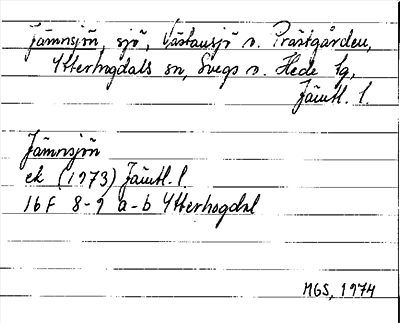 Jämnsjön, sjö, Västansjö o. Prästgården,
Ytterhogdals sn, Svegs o. Hede tg,
Jämtl. l.
Jämnsjön
ek (1973) Jämtl. l.
16F 8-9 a-b Ytterhogdal
MGS, 1974